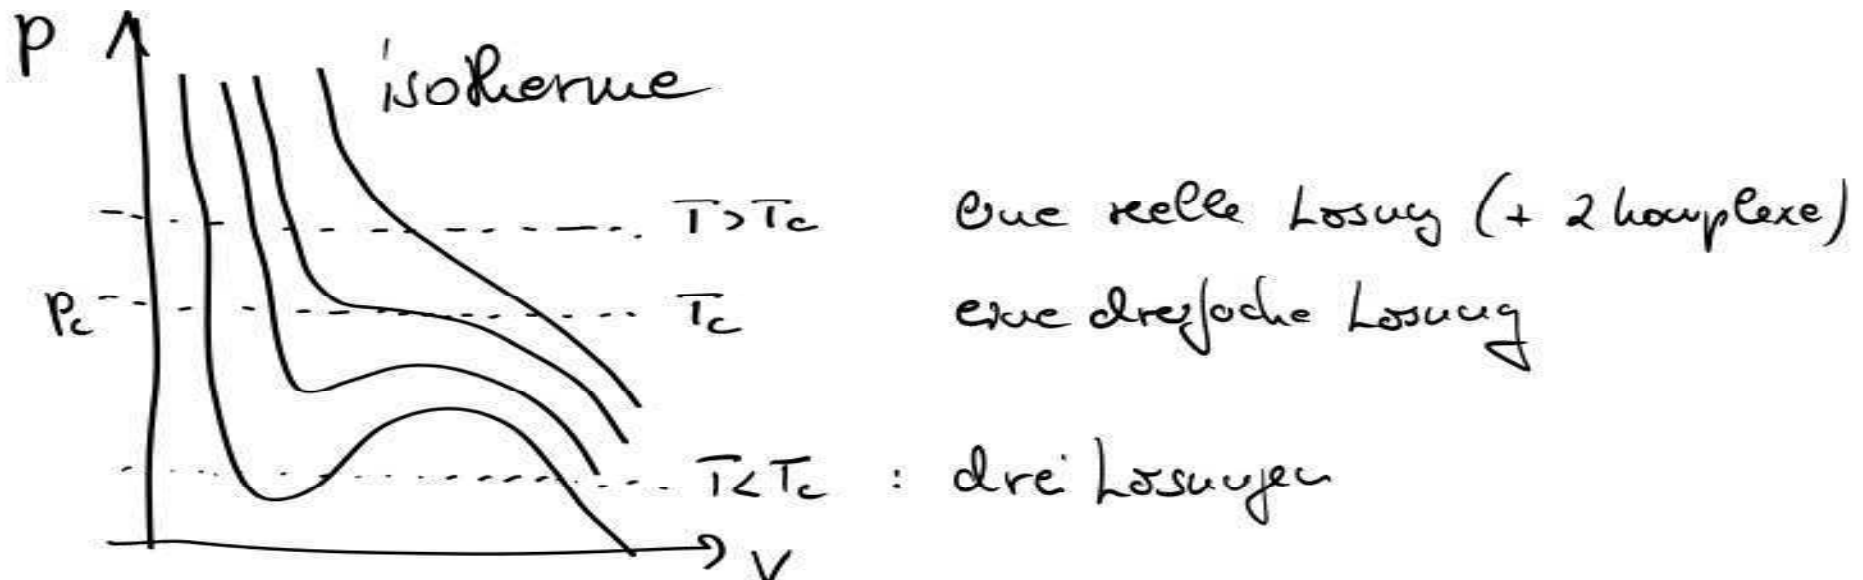 p
isotherme
T>Tc eine reelle Lösung (+ 2 komplexe)
pc Tc eine dreifache Lösung
T<Tc : drei Lösungen
V